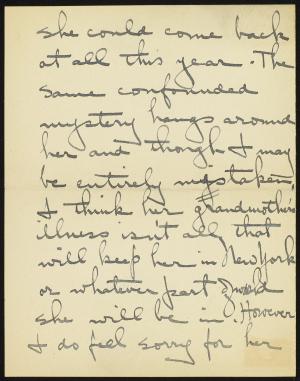 she could come back
at all this year. The
same confounded
mystery hangs around
her and though I may
be entirely mistaken,
I think her grandmother's
illness isn't all that
will keep her in New York
or whatever part of world
she will be in. However
I do feel sorry for her